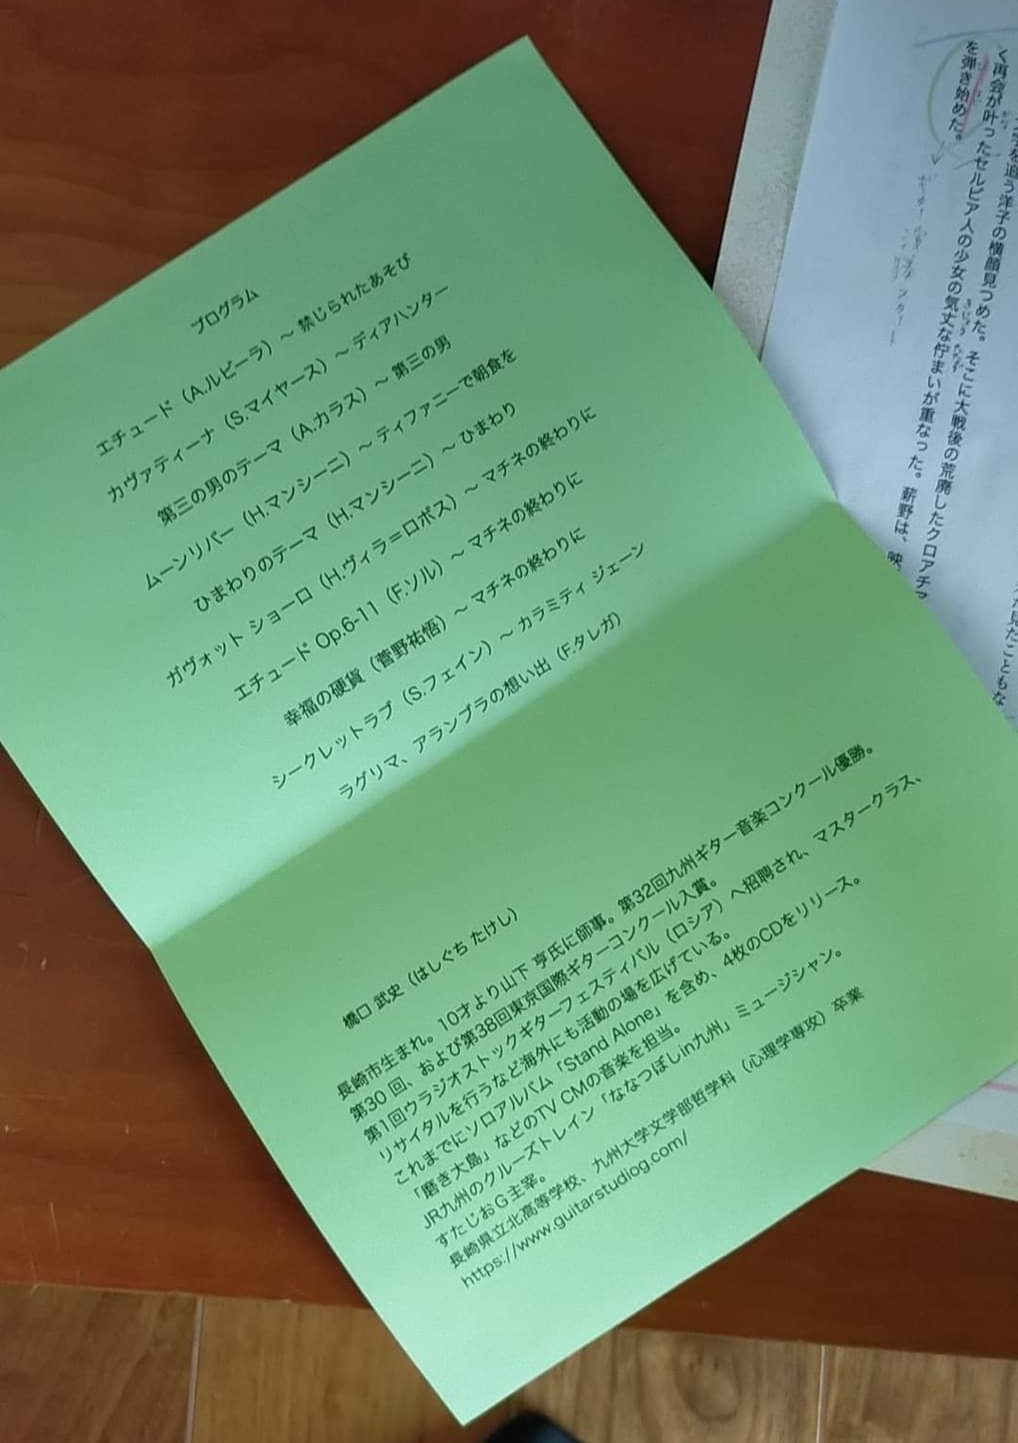 プログラム
エチュード（A.ルビーラ）～ 禁じられたあそび
カヴァティーナ（S.マイヤース）～ ディアハンター
第三の男のテーマ（A.カラス）～ 第三の男
ムーンリバー（H.マンシーニ）～ ティファニーで朝食を
ひまわりのテーマ（H.マンシーニ）～ ひまわり
ガヴォット ショーロ（H.ヴィラ＝ロボス）～ マチネの終わりに
エチュード Op.6-11（F.ソル）～ マチネの終わりに
幸福の硬貨（菅野祐悟）～ マチネの終わりに
シークレットラブ（S.フェイン）～ カラミティ ジェーン
ラグリマ、アランブラの想い出（F.タレガ）
橋口 武史（はしぐち たけし）
長崎市生まれ。10才より山下 亨氏に師事。第32回九州ギター音楽コンクール優勝。
第30 回、および第38回東京国際ギターコンクール入賞。
第1回ウラジオストックギターフェスティバル（ロシア）へ招聘され、マスタークラス、
リサイタルを行うなど海外にも活動の場を広げている。
これまでにソロアルバム「Stand Alone」を含め、4枚のCDをリリース。
「磨き大島」などのTV CMの音楽を担当。
JR九州のクルーズトレイン「ななつぼしin九州」ミュージシャン。
すたじおＧ主宰。
長崎県立北高等学校、九州大学文学部哲学科（心理学専攻）卒業
https://www.guitarstudiog.com/
を追う洋子の横顔見つめた。そこに大戦後の荒廃したクロアチア
く再会が叶ったセルビア人の少女の気丈な佇まいが重なった。薪野は、映
を弾き始めた。
見たこともな